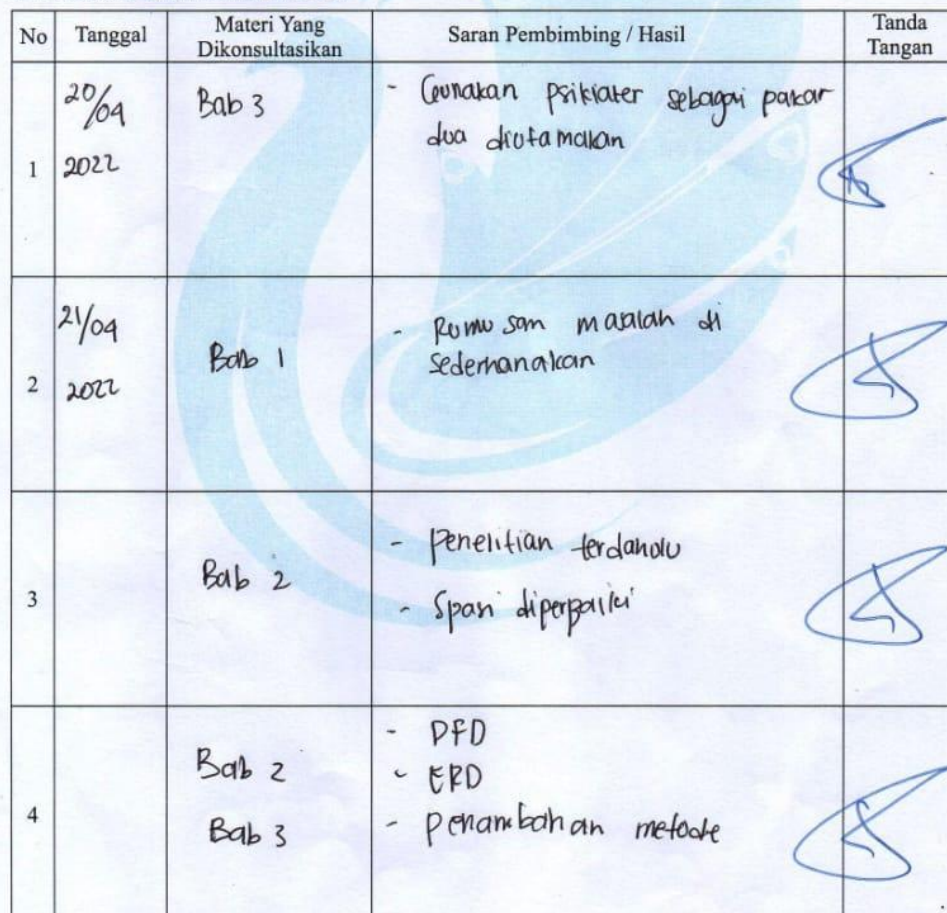 No Tanggal Materi Yang Dikonsultasikan Saran Pembimbing / Hasil Tanda Tangan
1 20/04 2022 Bab 3 - Gunakan psikiater sebagai pakar
dua diutamakan
2 21/04 2022 Bab 1 - Rumusan masalah di
sederhanakan
3 Bab 2 - Penelitian terdahulu
- Spasi diperbaiki
4 Bab 2 - DFD
- ERD
Bab 3 - penambahan metode